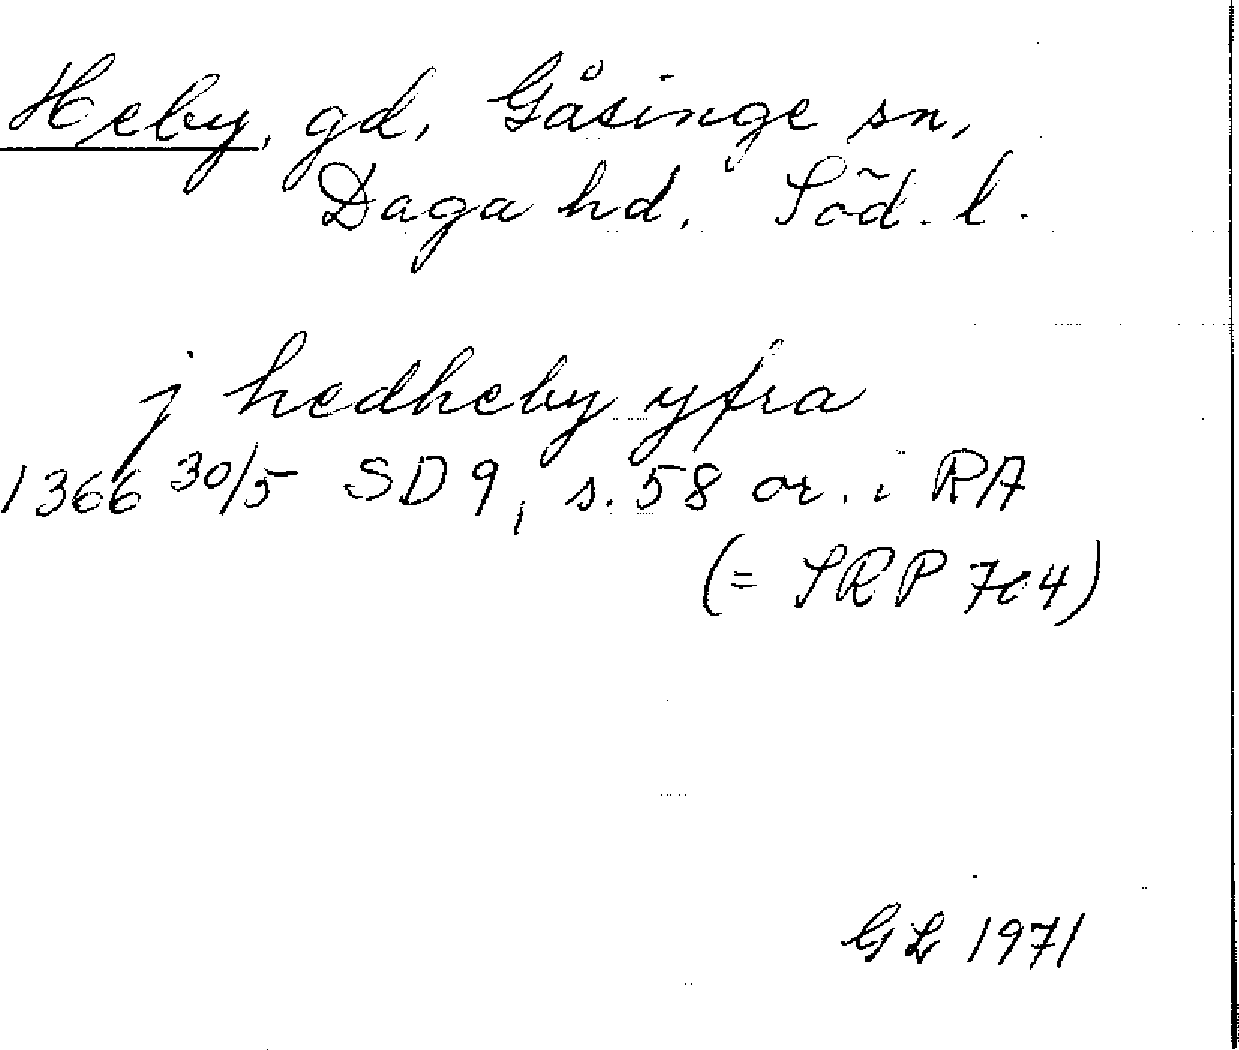 Heby, gd, Gåsinge sn,
Daga hd. Söd. l.
j hedheby yfra
1366 30/5 SD 9, s. 58 or. i RA
(= SRP 704)
GL 1971